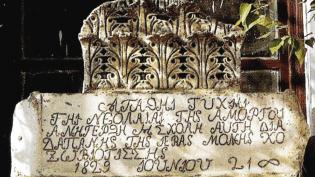 ΑΓΑΘΗΙ ΤΥΧΗΙ
ΤΗΙ ΝΕΟΛΑΙΑΙ ΤΗΣ ΑΜΟΡΓΟΥ
ΑΝΗΓΕΡΘΗ Η ΣΧΟΛΗ ΑΥΤΗ ΔΙΑ
ΔΑΠΑΝΗΣ ΤΗΣ ΙΕΡΑΣ ΜΟΝΗΣ ΧΟ
ΖΩΒΙΩΤΙΣΣΗΣ
1829 ΙΟΥΝΙΟΥ 21